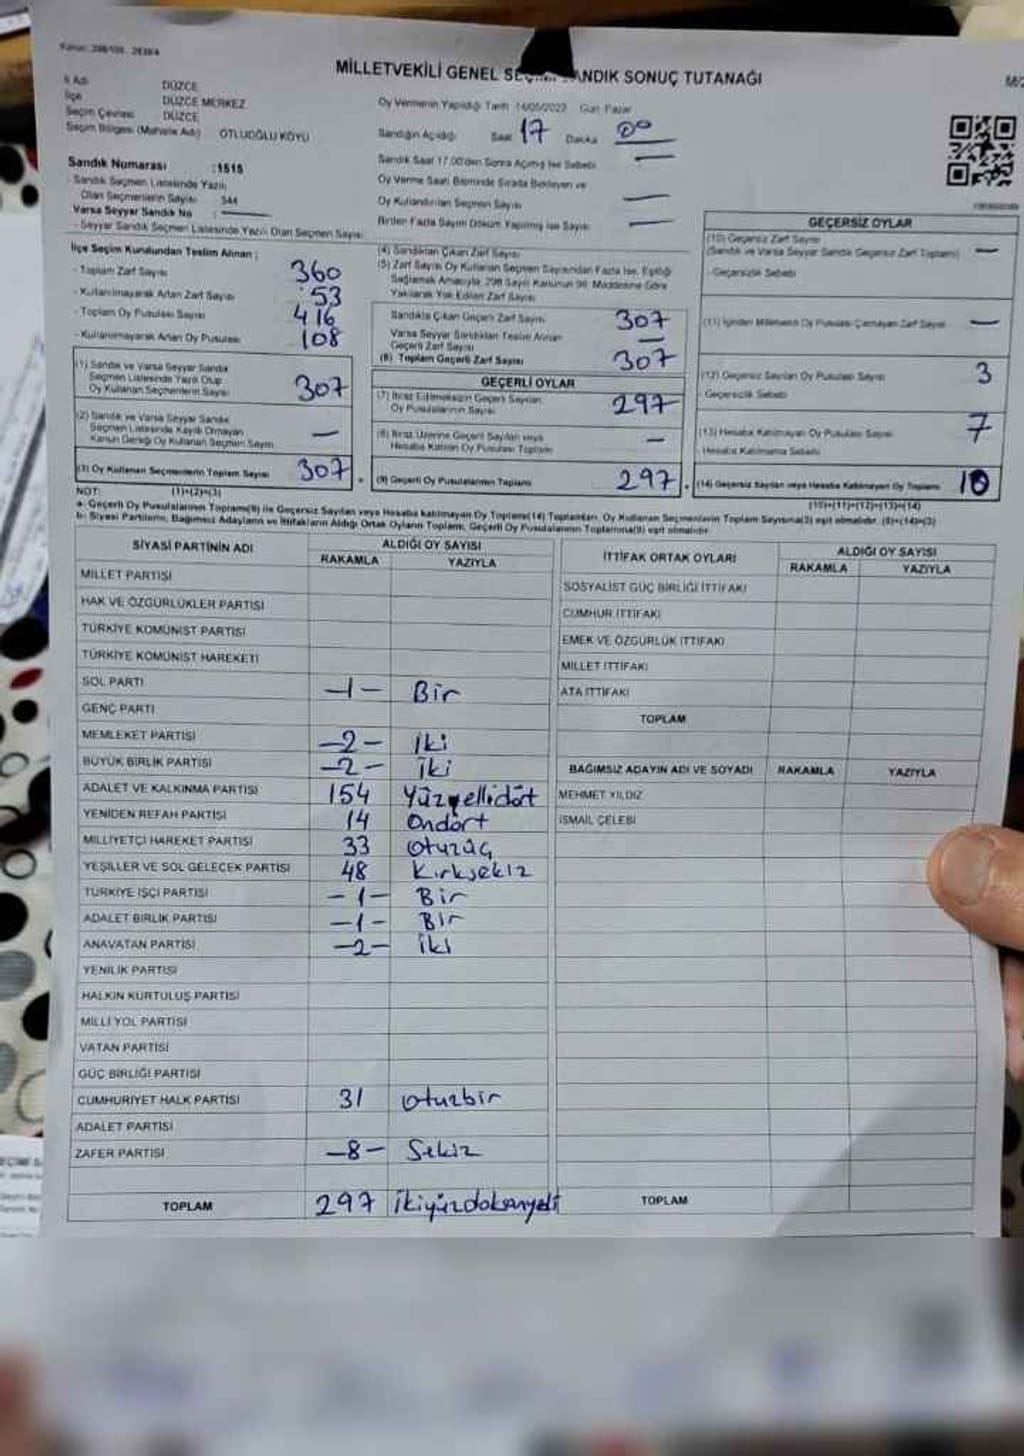 MİLLETVEKİLİ GENEL SEÇİMİ SANDIK SONUÇ TUTANAĞI
İl Adı DÜZCE
İlçe DÜZCE MERKEZ
Seçim Çevresi DÜZCE
Seçim Bölgesi (Mahalle Adı) OTLUOĞLU KÖYÜ
Oy Vermenin Yapıldığı Tarih 14/05/2023 Gün Pazar
Sandığın Açıldığı Saat 17 Dakika 00
Sandık Saat 17.00'den Sonra Açılmış İse Sebebi —
Oy Verme Saati Bitiminde Sırada Bekleyen ve
Oy Kullandırılan Seçmen Sayısı —
Birden Fazla Sayım Döküm Yapılmış İse Sayısı —
Sandık Numarası : 1515
- Sandık Seçmen Listesinde Yazılı
Olan Seçmenlerin Sayısı 344
Varsa Seyyar Sandık No : —
- Seyyar Sandık Seçmen Listesinde Yazılı Olan Seçmen Sayısı:
İlçe Seçim Kurulundan Teslim Alınan :
- Toplam Zarf Sayısı 360
- Kullanılmayarak Artan Zarf Sayısı 53
- Toplam Oy Pusulası Sayısı 416
- Kullanılmayarak Artan Oy Pusulası 108
(1) Sandık ve Varsa Seyyar Sandık
Seçmen Listesinde Yazılı Olup
Oy Kullanan Seçmenlerin Sayısı 307
(2) Sandık ve Varsa Seyyar Sandık
Seçmen Listesinde Kayıtlı Olmayan
Kanun Gereği Oy Kullanan Seçmen Sayısı —
(3) Oy Kullanan Seçmenlerin Toplam Sayısı 307
(4) Sandıktan Çıkan Zarf Sayısı
(5) Zarf Sayısı Oy Kullanan Seçmen Sayısından Fazla İse, Eşitliği
Sağlamak Amacıyla, 298 Sayılı Kanunun 98. Maddesine Göre
Yakılarak Yok Edilen Zarf Sayısı
Sandıkta Çıkan Geçerli Zarf Sayısı 307
Varsa Seyyar Sandıktan Teslim Alınan
Geçerli Zarf Sayısı —
(6) Toplam Geçerli Zarf Sayısı 307
GEÇERLİ OYLAR
(7) İtiraz Edilmeksizin Geçerli Sayılan
Oy Pusulalarının Sayısı 297
(8) İtiraz Üzerine Geçerli Sayılan veya
Hesaba Katılan Oy Pusulası Toplamı —
(9) Geçerli Oy Pusulalarının Toplamı 297
GEÇERSİZ OYLAR
(10) Geçersiz Zarf Sayısı
(Sandık ve Varsa Seyyar Sandık Geçersiz Zarf Toplamı) —
- Geçersizlik Sebebi
(11) İçinden Milletvekili Oy Pusulası Çıkmayan Zarf Sayısı —
(12) Geçersiz Sayılan Oy Pusulası Sayısı 3
- Geçersizlik Sebebi
(13) Hesaba Katılmayan Oy Pusulası Sayısı 7
- Hesaba Katılmama Sebebi
(14) Geçersiz Sayılan veya Hesaba Katılmayan Oy Toplamı 10
NOT: (1)+(2)=(3)
(10)+(11)+(12)+(13)=(14)
a- Geçerli Oy Pusulalarının Toplamı(9) ile Geçersiz Sayılan veya Hesaba katılmayan Oy Toplamı(14) Toplamları, Oy Kullanan Seçmenlerin Toplam Sayısına(3) eşit olmalıdır. (9)+(14)=(3)
b- Siyasi Partilerin, Bağımsız Adayların ve İttifakların Aldığı Ortak Oyların Toplamı, Geçerli Oy Pusulalarının Toplamına(9) eşit olmalıdır.
SİYASİ PARTİNİN ADI ALDIĞI OY SAYISI
RAKAMLA YAZIYLA
MİLLET PARTİSİ
HAK VE ÖZGÜRLÜKLER PARTİSİ
TÜRKİYE KOMÜNİST PARTİSİ
TÜRKİYE KOMÜNİST HAREKETİ
SOL PARTİ -1- Bir
GENÇ PARTİ
MEMLEKET PARTİSİ -2- İki
BÜYÜK BİRLİK PARTİSİ -2- İki
ADALET VE KALKINMA PARTİSİ 154 Yüzyellidört
YENİDEN REFAH PARTİSİ 14 Ondört
MİLLİYETÇİ HAREKET PARTİSİ 33 Otuzüç
YEŞİLLER VE SOL GELECEK PARTİSİ 48 Kırksekiz
TÜRKİYE İŞÇİ PARTİSİ -1- Bir
ADALET BİRLİK PARTİSİ -1- Bir
ANAVATAN PARTİSİ -2- İki
YENİLİK PARTİSİ
HALKIN KURTULUŞ PARTİSİ
MİLLİ YOL PARTİSİ
VATAN PARTİSİ
GÜÇ BİRLİĞİ PARTİSİ
CUMHURİYET HALK PARTİSİ 31 Otuzbir
ADALET PARTİSİ
ZAFER PARTİSİ -8- Sekiz
TOPLAM 297 İkiyüzdoksanyedi
İTTİFAK ORTAK OYLARI ALDIĞI OY SAYISI
RAKAMLA YAZIYLA
SOSYALİST GÜÇ BİRLİĞİ İTTİFAKI
CUMHUR İTTİFAKI
EMEK VE ÖZGÜRLÜK İTTİFAKI
MİLLET İTTİFAKI
ATA İTTİFAKI
TOPLAM
BAĞIMSIZ ADAYIN ADI VE SOYADI RAKAMLA YAZIYLA
MEHMET YILDIZ
İSMAİL ÇELEBİ
TOPLAM